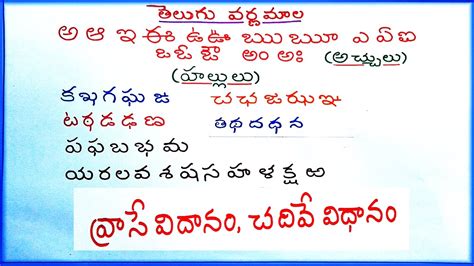 తెలుగు వర్ణమాల
అ ఆ ఇ ఈ ఉ ఊ ఋ ౠ ఎ ఏ ఐ
ఒ ఓ ఔ అం అః (అచ్చులు)
(హల్లులు)
క ఖ గ ఘ జ చ ఛ జ ఝ ఞ
ట ఠ డ ఢ ణ త థ ద ధ న
ప ఫ బ భ మ
య ర ల వ శ ష స హ ళ క్ష ఱ
వ్రాసే విదానం, చదివే విధానం